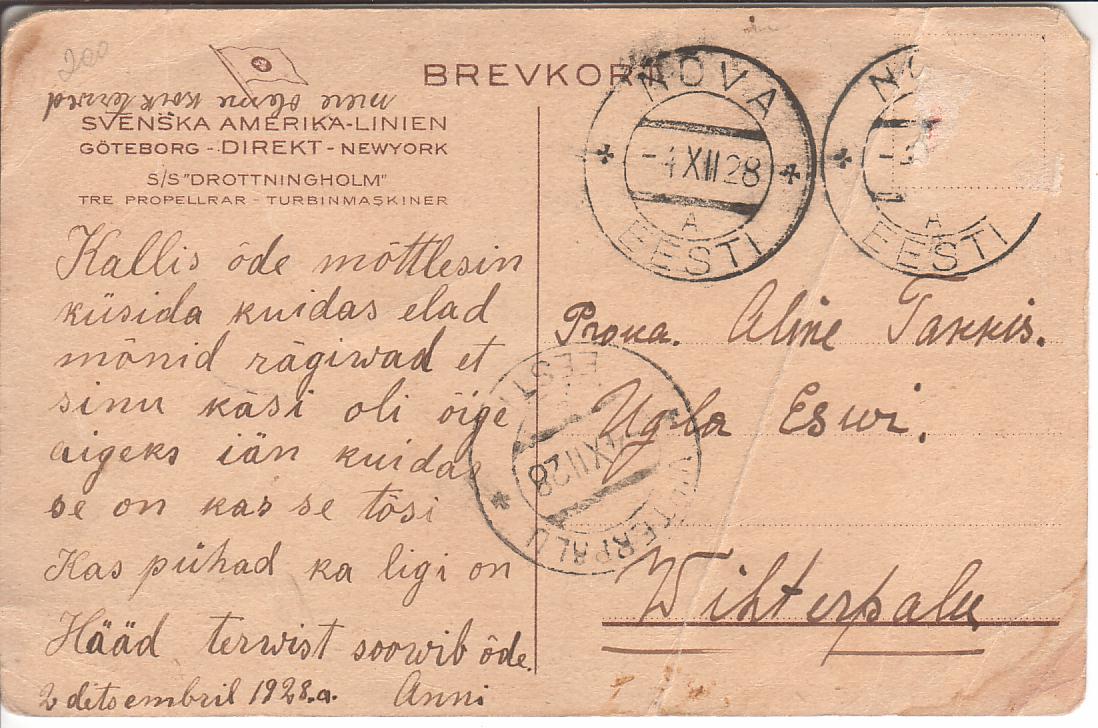 200
BREVKORT
meie oleme kõik terwed
SVENSKA AMERIKA-LINIEN
GÖTEBORG - DIREKT - NEWYORK
S/S "DROTTNINGHOLM"
TRE PROPELLRAR - TURBINMASKINER
Kallis õde mõttlesin
küsida kuidas elad
mõnid rägiwad et
sinu käsi oli õige
aigeks iän kuidas
se on kas se tõsi
Kas pühad ka ligi on
Hääd terwist soowib õde.
2 ditsembril 1928.a. Anni
NÕVA
-4 XII 28
A
EESTI
A
EESTI
Proua. Aline Takkis.
Ugla Eswi.
Wihterpalu
EESTI
XII 28
WIHTERPALU